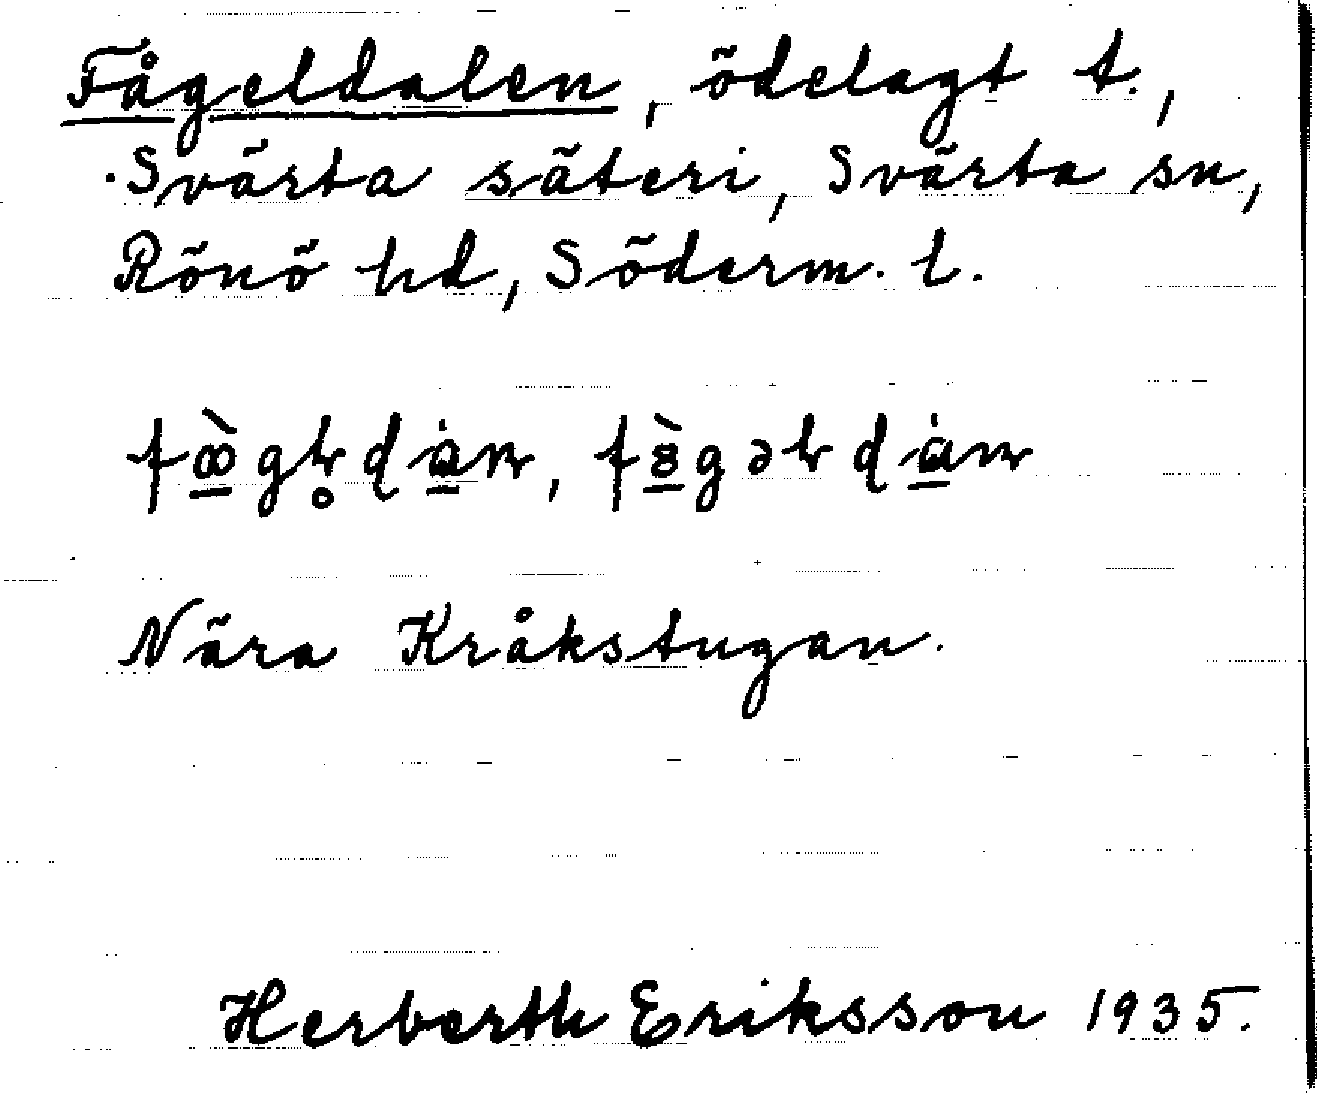 Fågeldalen, ödelagt t.,
Svärta säteri, Svärta sn,
Rönö hd, Söderm. l.
Nära Kråkstugan.
Herberth Eriksson 1935.